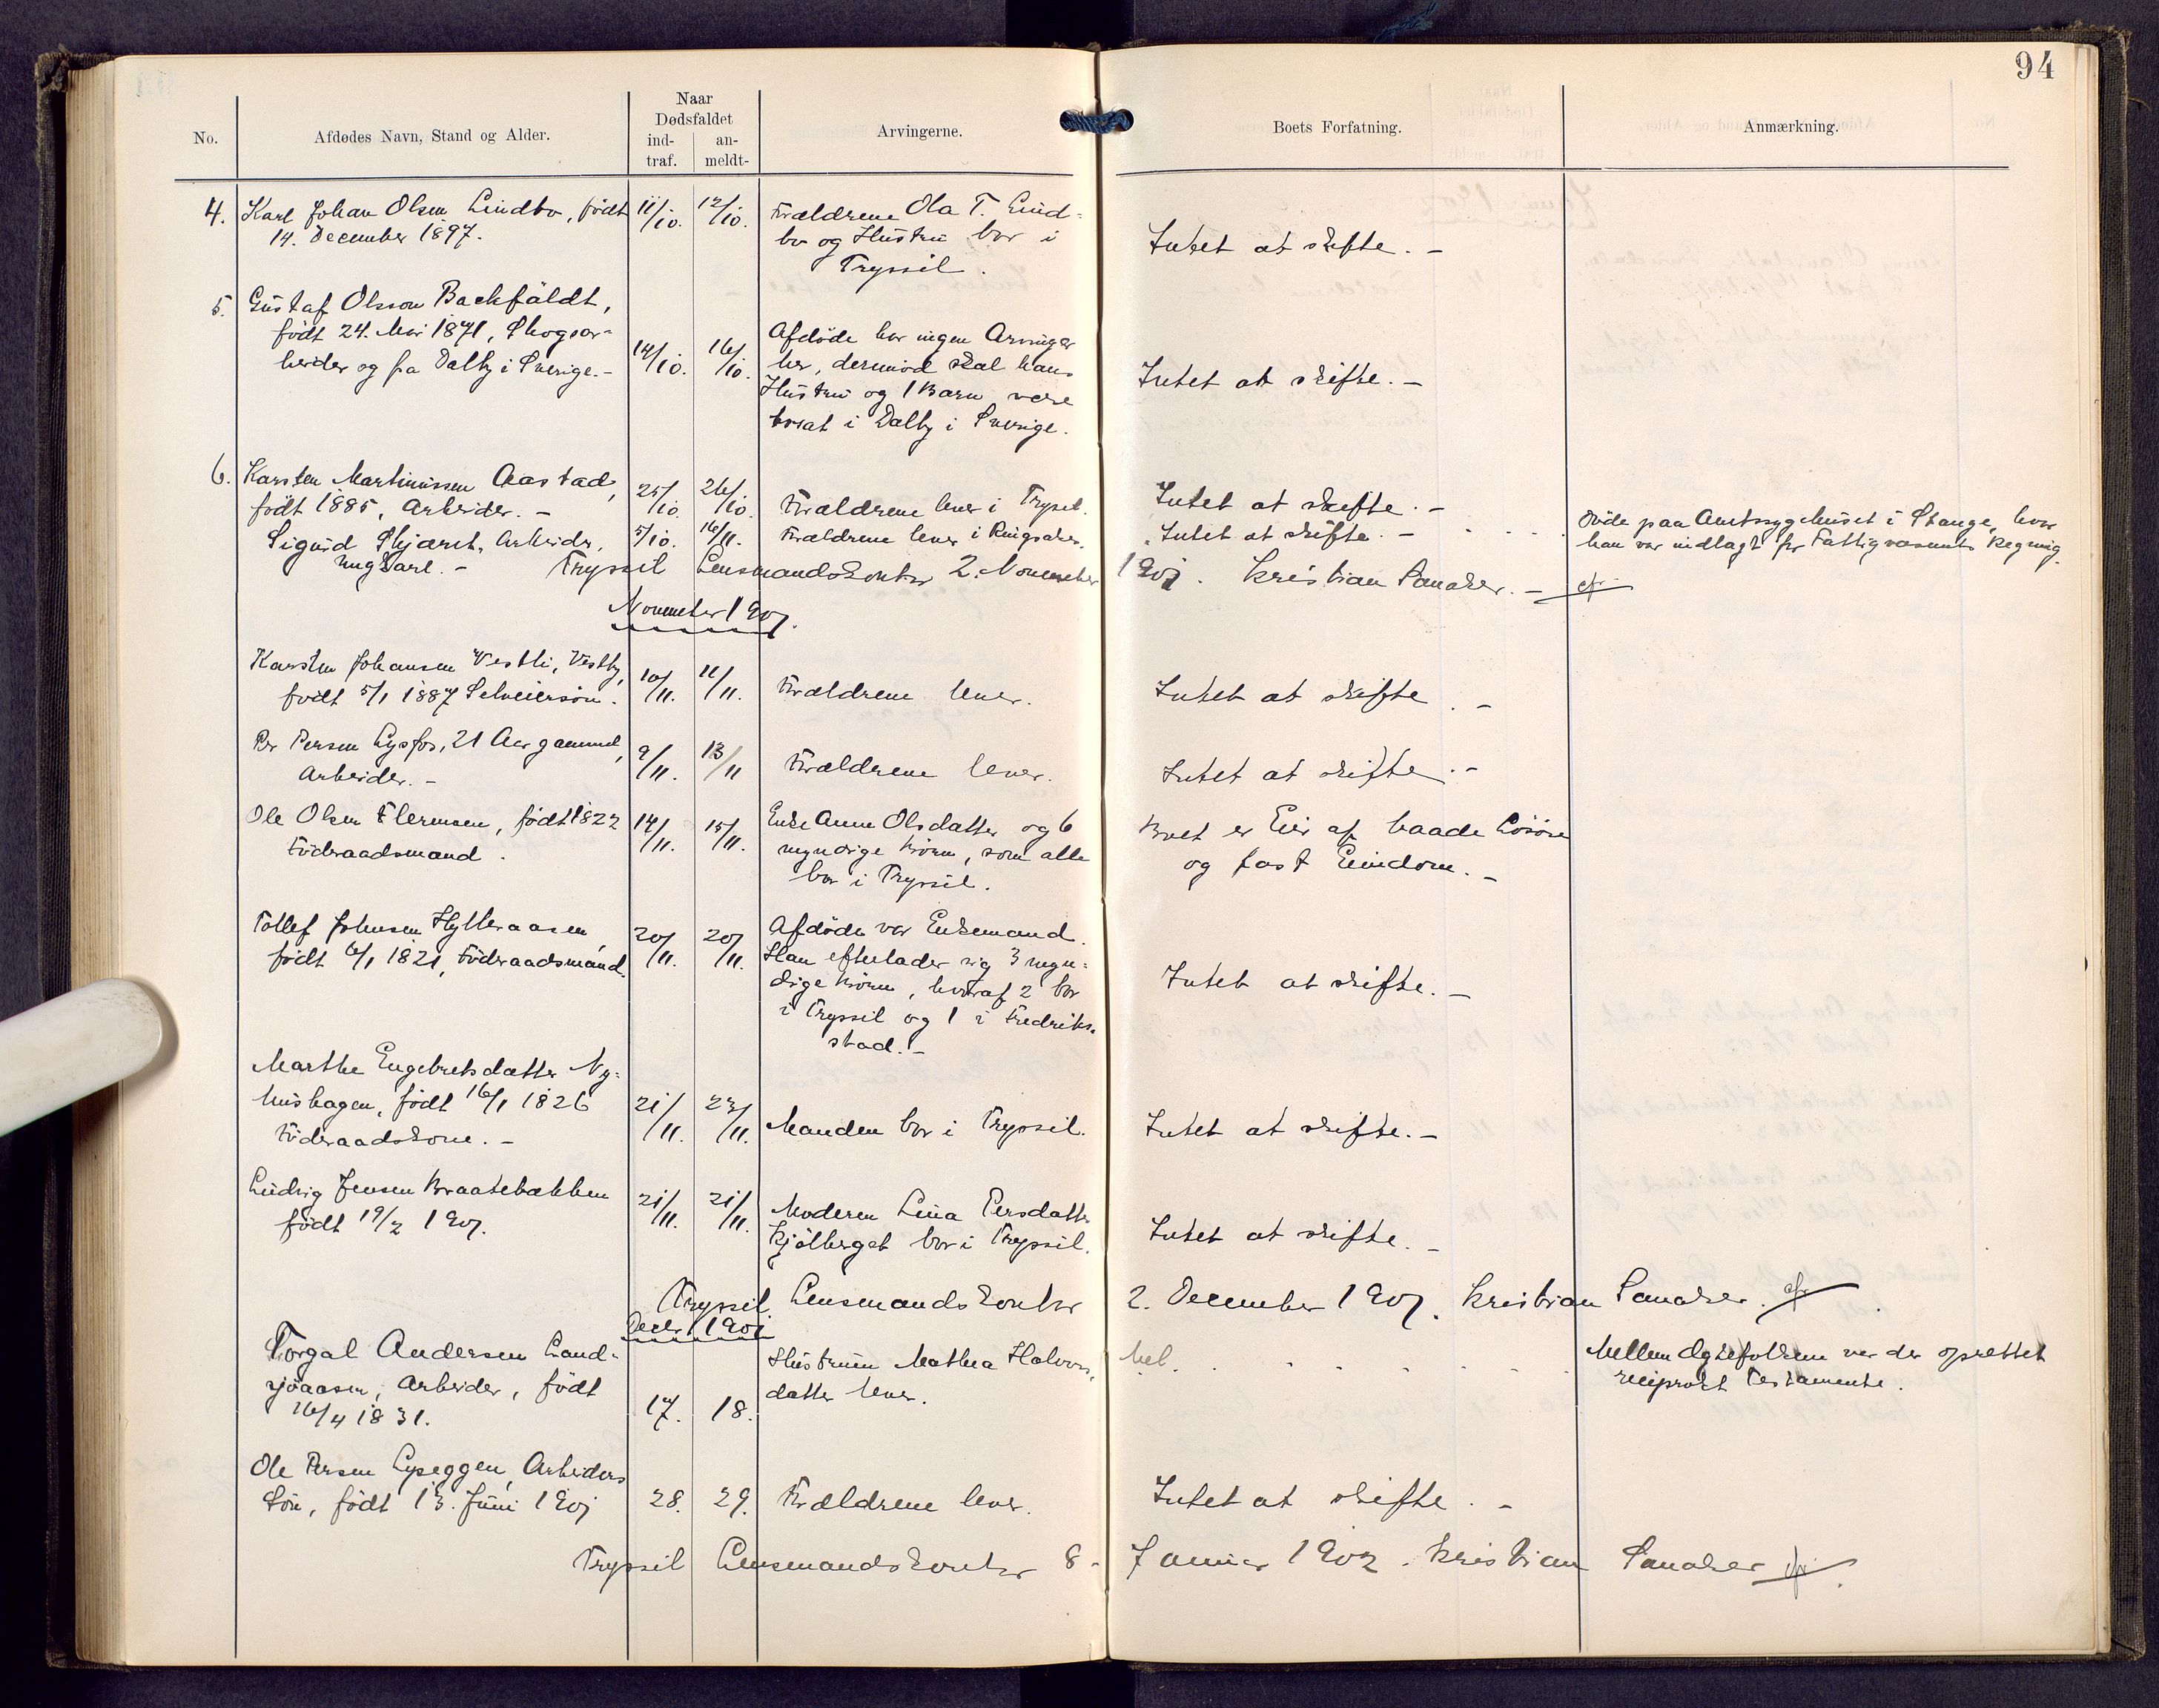 94
No.
Afdødes Navn, Stand og Alder.
Naar
Dødsfaldet
ind-
traf.
an-
meldt-
Arvingerne.
Boets Forfatning.
Anmærkning.
4. Karl Johan Olsen Lindbo, født 11/10. 12/10. Forældrene Ola T. Lind-
14. December 1897. bo og Hustru bor i
Tryssil.
Intet at skifte. -
5. Gustaf Olsson Backfäldt,
født 24. Mai 1871, Skogsar-
beider og fra Dalby i Sverige. - 14/10. 16/10.
Afdøde har ingen Arvinger
her, derimod skal hans
Hustru og 1 Barn være
bosat i Dalby i Sverige.
Intet at skifte. -
6. Karsten Martinussen Aastad,
født 1885, Arbeider. - 25/10. 26/10. Forældrene lever i Trysil. Intet at skifte. -
Sigurd Skjæret, Arbeider, 5/10. 16/11. Forældrene lever i Ringsaker. Intet at skifte. -
Ungkarl. -
Døde paa Amtssygehuset i Stange, hvor
han var indlagt for Fattigvæsenets Regning.
Tryssil Lensmandskontor 2. November 1901. Kristian Sanaker. -
November 1901.
Karsten Johansen Vestli, Vestby,
født 5/1 1887 Selveiersøn. 10/11. 11/11. Forældrene lever. Intet at skifte. -
Per Persen Lysfos, 21 Aar gammel,
Arbeider. - 9/11. 13/11 Forældrene lever. Intet at skifte. -
Ole Olsen Flermoen, født 1822 14/11. 15/11.
Føderaadsmand.
Enke Anne Olsdatter og 6
myndige Børn, som alle
bor i Tryssil.
Boet er Eier af baade Løsøre
og fast Eiendom. -
Tollef Johnsen Hylleraasen,
født 6/1 1821, Føderaadsmand. 20/11. 20/11.
Afdøde var Enkemand.
Han efterlader sig 3 myn-
dige Børn, hvoraf 2 bor
i Tryssil og 1 i Fredriks-
stad. -
Intet at skifte. -
Marthe Engebretsdatter Ny-
hushagen, født 16/1 1826
Føderaadskone. - 21/11. 23/11. Manden bor i Tryssil. Intet at skifte. -
Ludvig Jensen Braatebækken
født 19/2 1901. 21/11. 21/11.
Moderen Lina Persdatter
Kjølberget bor i Tryssil.
Intet at skifte. -
Tryssil Lensmandskontor 2. December 1901. Kristian Sanaker.
Decbr. 1901
Torgal Andersen Land-
sjøaasen, Arbeider, født
16/4 1831. 17. 18.
Hustruen Mathea Halvors-
datter lever.
Mellem Ægtefolkene var der oprettet
reciprokt Testamente.
Ole Persen Lyseggen, Arbeiders
Søn, født 13. Juni 1901 28. 29. Forældrene lever. Intet at skifte. -
Tryssil Lensmandskontor 8. Januar 1902. Kristian Sanaker